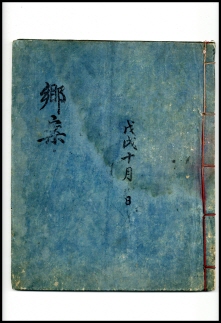 鄕案
戊戌十月 日